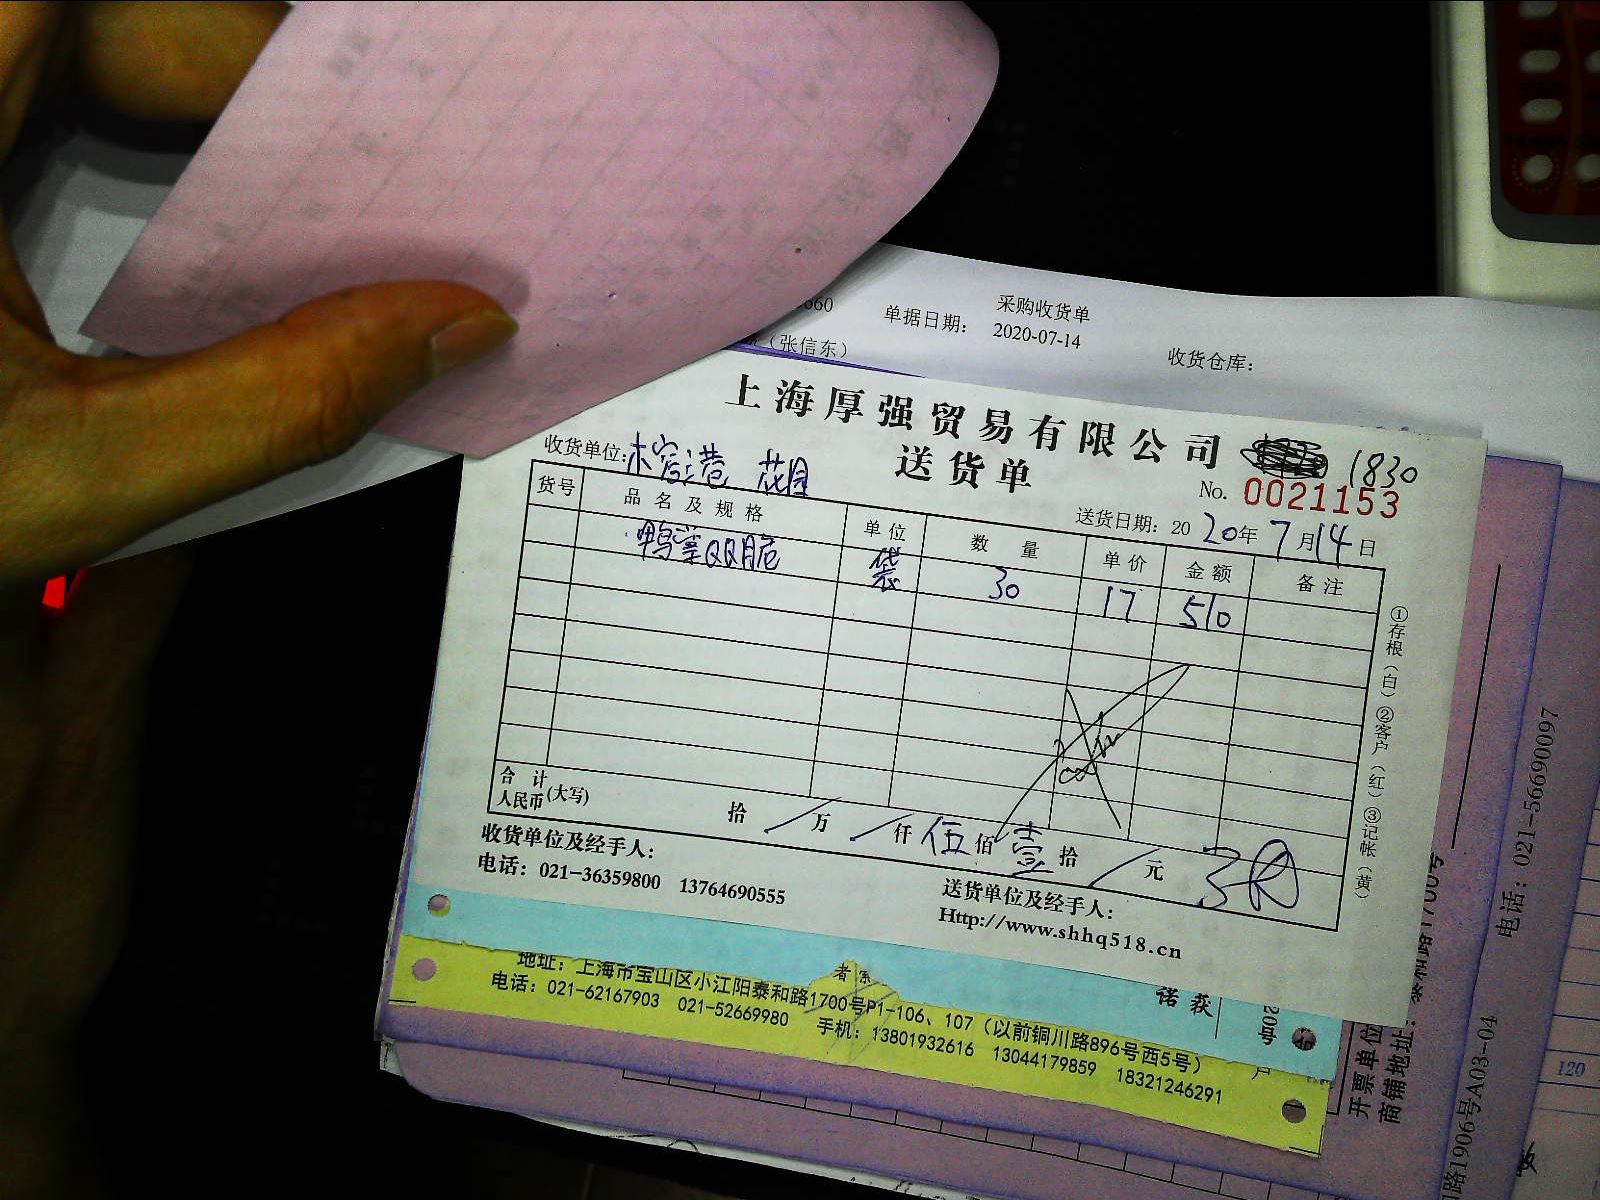 采购收货单
660 单据日期： 2020-07-14 收货仓库：
（张信东）
上海厚强贸易有限公司
送货单
1830
No. 0021153
收货单位： 花园
送货日期：2020年7月14日
货号 品名及规格 单位 数量 单价 金额 备注
鸭掌QQ脆 袋 30 17 510
合计
人民币(大写) 拾/万/仟伍佰壹拾/元
收货单位及经手人：
送货单位及经手人：
电话：021-36359800 13764690555
Http://www.shhq518.cn
①存根（白）②客户（红）③记帐（黄）
地址：上海市宝山区小江阳泰和路1700号P1-106、107（以前铜川路896号西5号）
电话：021-62167903 021-52669980 手机：13801932616 13044179859 18321246291
开票单位
商铺地址：
电话：021-56690097
路1906号A03-04
120